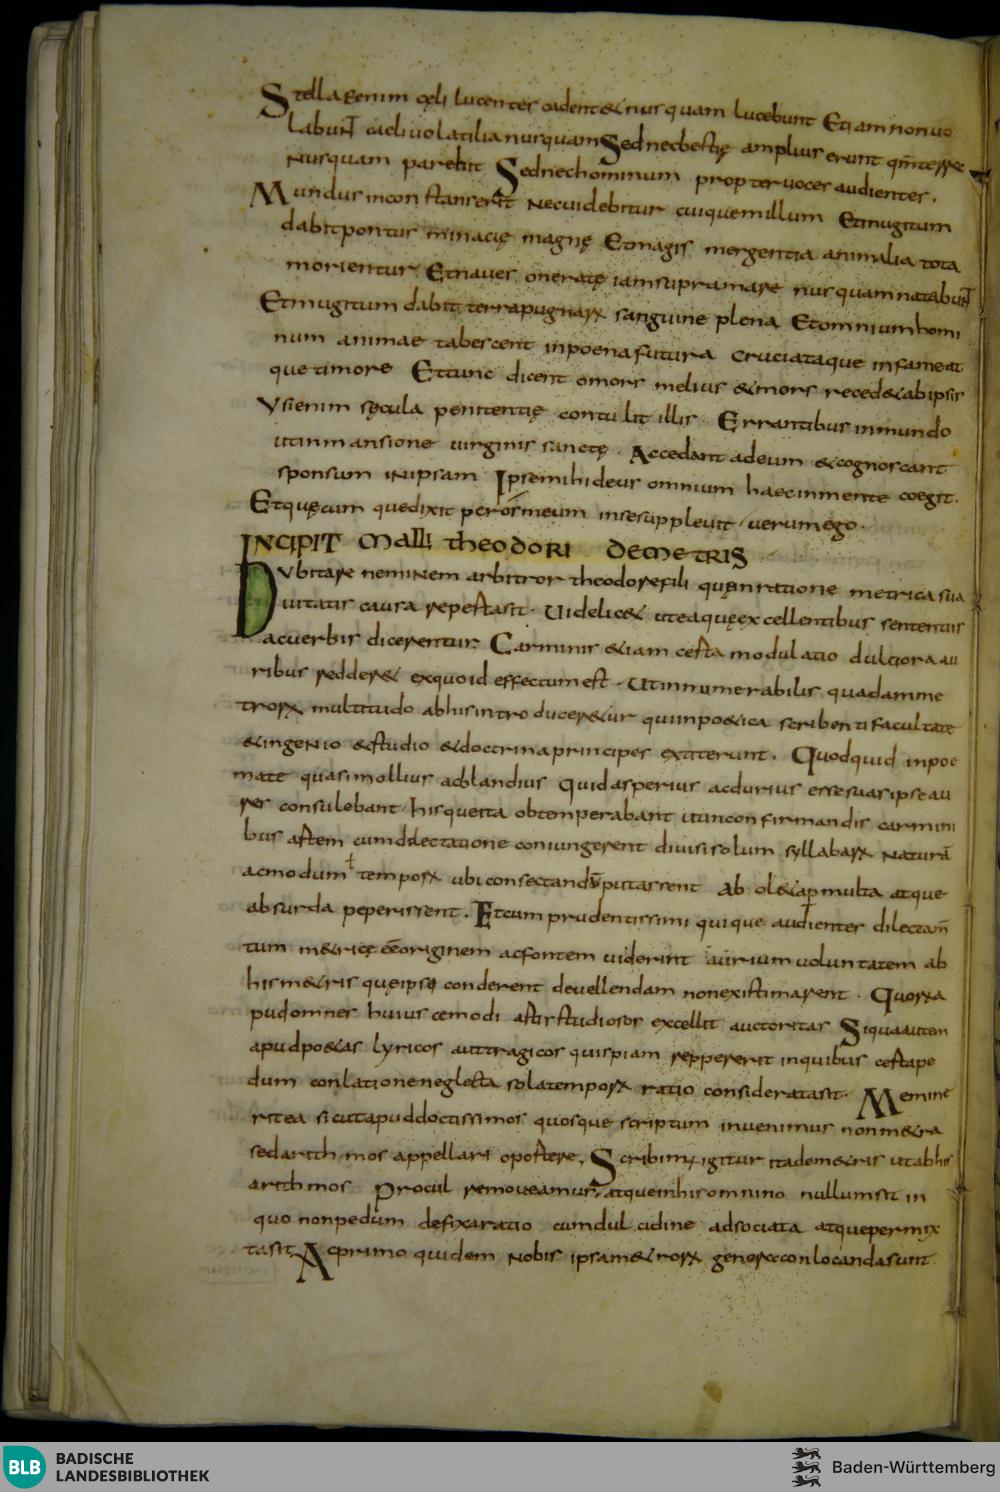 Stellae enim cęli lucenter cadent & nusquam lucebunt Etiam non uo
labunt caeli uolatilia nusquam Sed nec bestię amplius erunt
Nusquam parebit Sed nec hominum propter uoces audientes.
Mundus inconstans erit Nec uidebitur cuiquem illum Et mugitum
dabit pontus minacię magnę Et magis mergentia animalia tota
morientur Et naues oneratę iam supra mare nusquam natabunt
Et mugitum dabit terra pugnarum sanguine plena Et omnium homi
num animae tabescent in poena futura cruciataque in fame at
que timore Et tunc dicent o mors melius & mors reced& ab ipsis
Vsi enim sęcula penitentię contulit illis Errantibus in mundo
ut in mansione uirginis sanctę. Accedant ad eum & cognoscant
sponsum in ipsam Ipse mihi deus omnium haec in mente coegit.
Et quęcum que dixit per os meum in se suppleuit uerum ego.
INCIPIT Malli theodori DEMETRIS
Dubitare neminem arbitror theodore fili quęn ratione metrica sua
uitatis causa reperta sit. Videlic& ut ea quę excellentibus sententiis
ac uerbis dicerentur. Carminis &iam certa modulatio dulciora au
ribus redder& ex quo id effectum est. Ut innumerabilis quadam me
trorum multitudo ab his introducer&ur qui in po&ica scribenti facultate
& ingenio & studio & doctrina principes extiterunt. Quod quid in poe
mate quasi mollius ac blandius Quid asperius ac durius esse suas ipse au
res consulebant his que ita obtemperabant ut in confirmandis carmini
bus artem cum delectatione coniungerent diuisi solum syllabarum naturā
ac modum temporum ubi consectandū putassent Ab ol& ia p multa atque
absurda peperissent. Et cum prudentissimi quique audienter dilectam
tum m&ricę eē originem ac fontem uiderint aurium uoluntatem ab
his m&ris quę ipsi conderent deuellendam non existimarent. Quorum a
pud omnes huius cemodi artis studiosos excellit auctoritas Si qua autem
apud po&as lyricos aut tragicos quispiam reppererit in quibus certa pe
dum conlatione neglecta sola temporum ratio considerata sit. Memine
rit ea sicut apud doctissimos quosque scriptum inuenimus non m&ra
sed arithmos appellari oportere. Scribimus igitur ita de m&ris ut ab his
arithmos procul remoueamus, atque in his omnino nullum sit in
quo non pedum defixa ratio cum dulcidine adsociata atque permix
ta sit. Ac primo quidem nobis ipsa m&rorum genera conlocanda sunt
BLB BADISCHE
LANDESBIBLIOTHEK
Baden-Württemberg